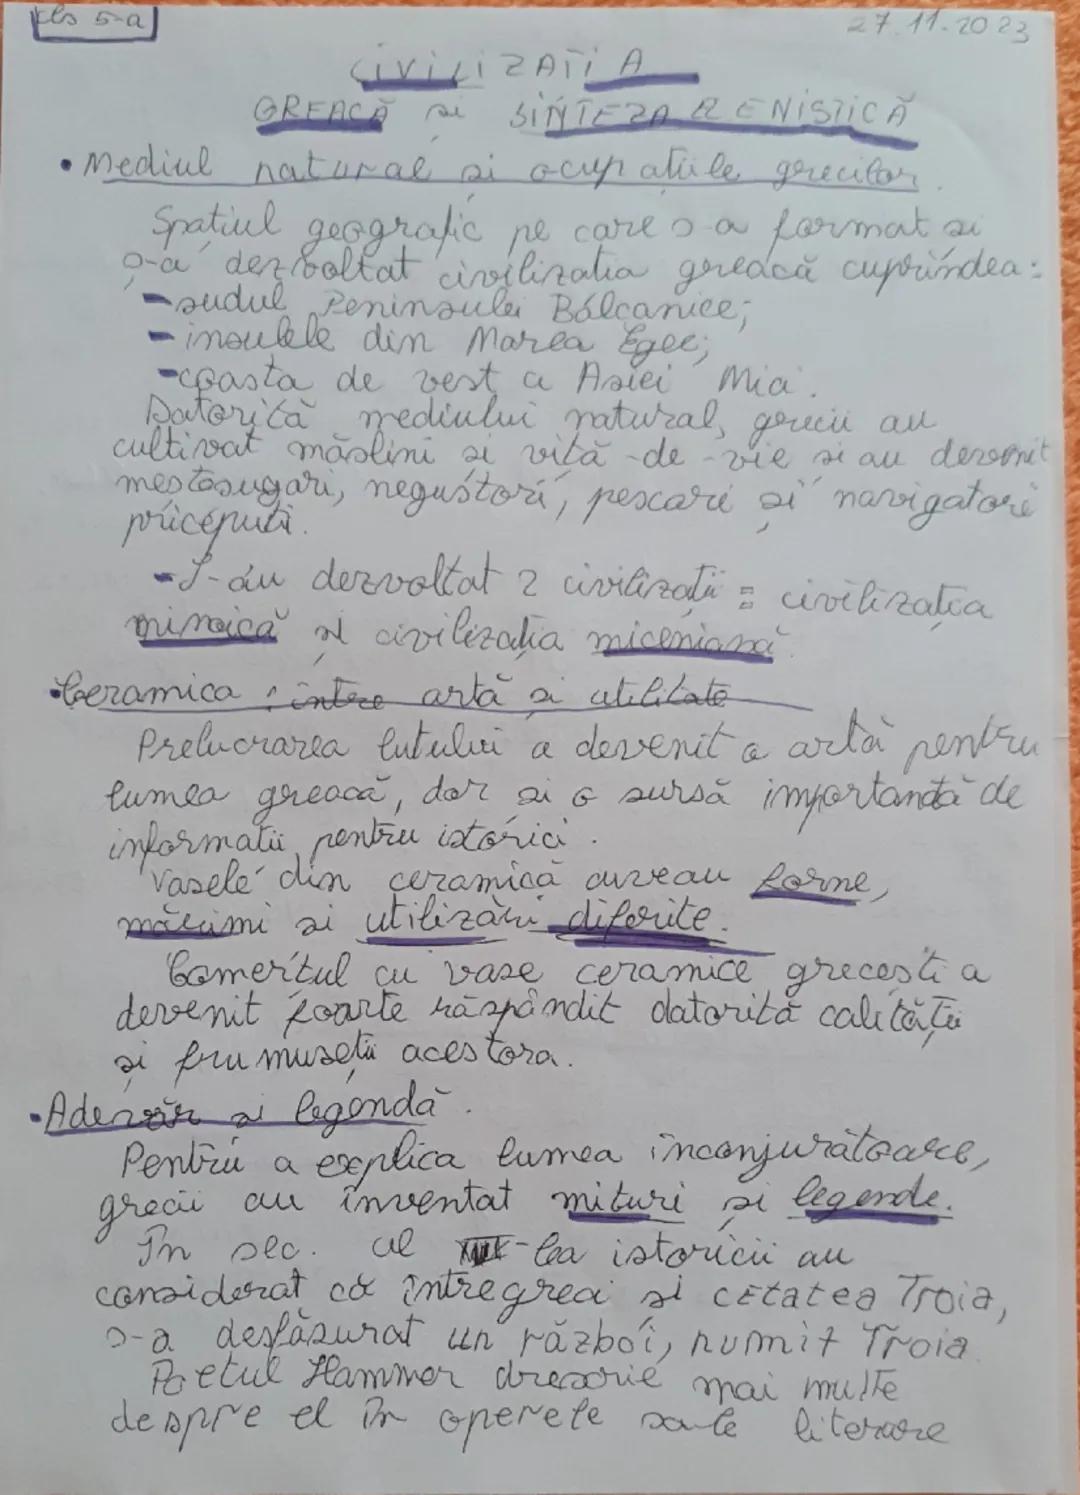 cls 5-a
27.11.2023
CIVILIZAȚIA
GREACĂ și SINTEZA ELENISTICĂ
• Mediul natural și ocupațiile grecilor.
Spațiul geografic pe care s-a format și
s-a dezvoltat civilizația greacă cuprindea:
-sudul Peninsulei Balcanice;
-insulele din Marea Egee;
-coasta de vest a Asiei Mici.
Datorită mediului natural, grecii au
cultivat măslini și viță-de-vie și au devenit
meștesugari, negustori, pescari și navigatori
pricepuți.
-S-au dezvoltat 2 civilizații: civilizația
minoică și civilizația miceniană.
•Ceramica: între artă și utilitate
Prelucrarea lutului a devenit o artă pentru
lumea greacă, dar și o sursă importantă de
informații pentru istorici.
Vasele din ceramică aveau forme,
mărimi și utilizări diferite.
Comerțul cu vase ceramice grecești a
devenit foarte răspândit datorită calității
și frumuseții acestora.
•Adevăr și legendă.
Pentru a explica lumea înconjurătoare,
grecii au inventat mituri și legende.
În sec. al -lea istoricii au
considerat că între greci și cetatea Troia,
s-a desfășurat un război, numit Troia.
Poetul Hammer descrie mai multe
despre el în operele sale literare